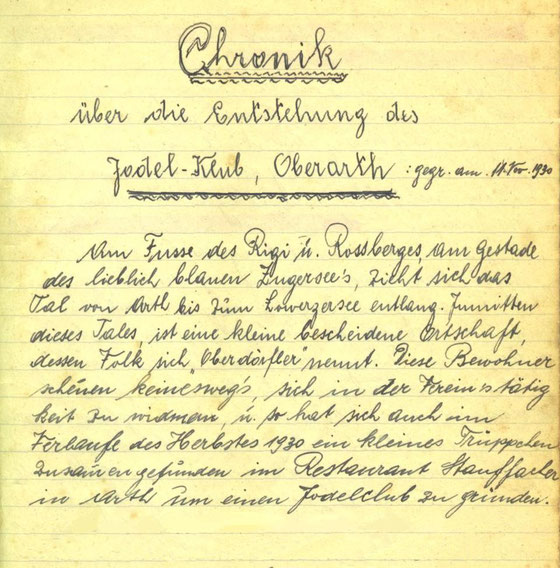 Chronik
über die Entstehung des
Jodel-Klub, Oberarth : gegr. am. 11. Nov. 1930
Am Fusse des Rigi u. Rossberges, am Gestade
des lieblich blauen Zugersee's, zieht sich das
Tal von Arth bis zum Lowerzersee entlang. Inmitten
dieses Tales, ist eine kleine bescheidene Ortschaft,
dessen Volk sich „Oberdörfler" nennt. Diese Bewohner
scheuen keineswegs, sich in der Vereinstätig
keit zu widmen, u. so hat sich auch im
Verlaufe des Herbstes 1930 ein kleines Trüppchen
zusammengefunden im Restaurant Stauffacher
in Arth um einen Jodelclub zu gründen.